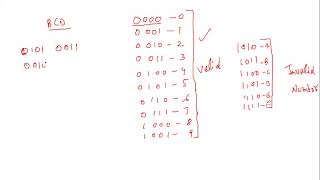 BCD
0101 0011
0010
0000 - 0
0001 - 1
0010 - 2
0011 - 3
0100 - 4
0101 - 5
0110 - 6
0111 - 7
1000 - 8
1001 - 9
valid
1010 - A
1011 - B
1100 - C
1101 - D
1110 - E
1111 - F
Invalid
Number